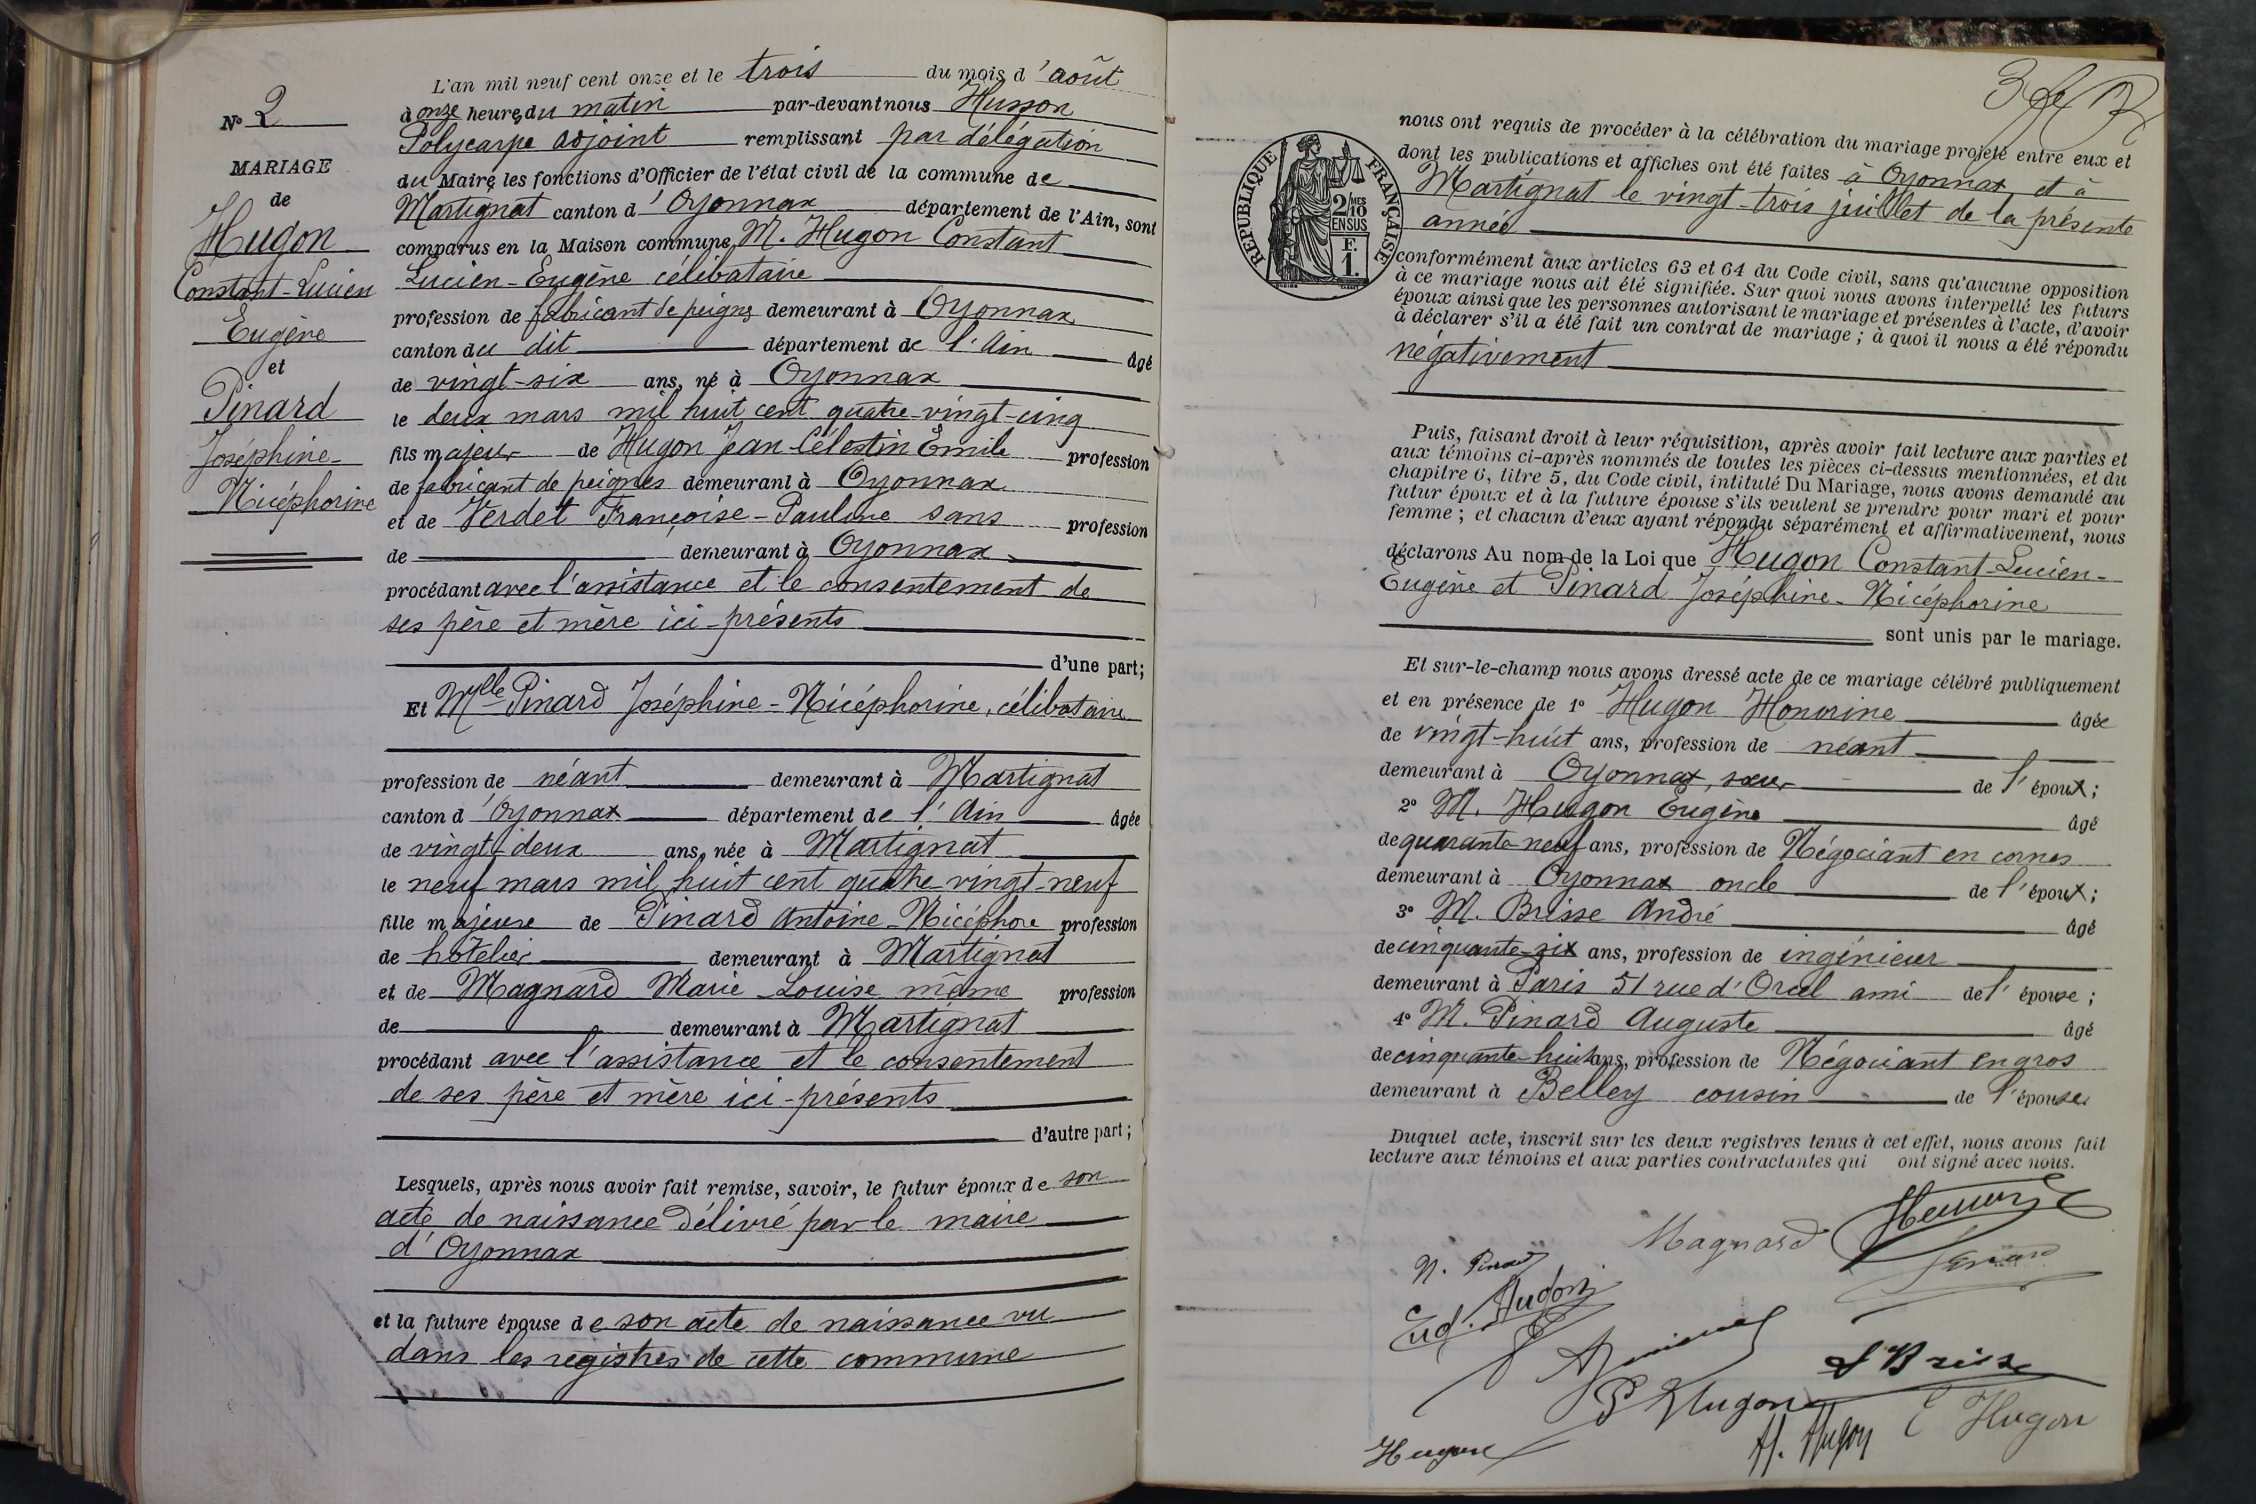 N° 2
MARIAGE
de
Hugon
Constant-Lucien
Eugène
et
Pinard
Joséphine-
Nicéphorine
L'an mil neuf cent onze et le trois du mois d'août
à onze heures du matin par-devant nous Husson
Polycarpe adjoint remplissant par délégation
du Maire les fonctions d'Officier de l'état civil de la commune de
Martignat canton d'Oyonnax département de l'Ain, sont
comparus en la Maison commune, M. Hugon Constant
Lucien-Eugène célibataire
profession de fabricant de peignes demeurant à Oyonnax
canton du dit département de l'Ain âgé
de vingt-six ans, né à Oyonnax
le deux mars mil huit cent quatre-vingt-cinq
fils majeur de Hugon Jean-Célestin Emile profession
de fabricant de peignes demeurant à Oyonnax
et de Verdet Françoise-Pauline sans profession
de demeurant à Oyonnax
procédant avec l'assistance et le consentement de
ses père et mère ici-présents
d'une part;
Et Mlle Pinard Joséphine-Nicéphorine, célibataire
profession de néant demeurant à Martignat
canton d'Oyonnax département de l'Ain âgée
de vingt-deux ans, née à Martignat
le neuf mars mil huit cent quatre-vingt-neuf
fille majeure de Pinard Antoine-Nicéphore profession
de hôtelier demeurant à Martignat
et de Magnard Marie-Louise même profession
de demeurant à Martignat
procédant avec l'assistance et le consentement
de ses père et mère ici-présents
d'autre part;
Lesquels, après nous avoir fait remise, savoir, le futur époux de son
acte de naissance délivré par le maire
d'Oyonnax
et la future épouse de son acte de naissance vu
dans les registres de cette commune
3
RÉPUBLIQUE FRANÇAISE
2/10
EN SUS
F.
1.
nous ont requis de procéder à la célébration du mariage projeté entre eux et
dont les publications et affiches ont été faites à Oyonnax et à
Martignat le vingt-trois juillet de la présente
année
conformément aux articles 63 et 64 du Code civil, sans qu'aucune opposition
à ce mariage nous ait été signifiée. Sur quoi nous avons interpellé les futurs
époux ainsi que les personnes autorisant le mariage et présentes à l'acte, d'avoir
à déclarer s'il a été fait un contrat de mariage; à quoi il nous a été répondu
négativement
Puis, faisant droit à leur réquisition, après avoir fait lecture aux parties et
aux témoins ci-après nommés de toutes les pièces ci-dessus mentionnées, et du
chapitre 6, titre 5, du Code civil, intitulé Du Mariage, nous avons demandé au
futur époux et à la future épouse s'ils veulent se prendre pour mari et pour
femme; et chacun d'eux ayant répondu séparément et affirmativement, nous
déclarons Au nom de la Loi que Hugon Constant-Lucien-
Eugène et Pinard Joséphine-Nicéphorine
sont unis par le mariage.
Et sur-le-champ nous avons dressé acte de ce mariage célébré publiquement
et en présence de 1° Hugon Honorine âgée
de vingt-huit ans, profession de néant
demeurant à Oyonnax, sœur de l'époux;
2° M. Hugon Eugène âgé
de quarante-neuf ans, profession de Négociant en cornes
demeurant à Oyonnax oncle de l'époux;
3° M. Brisse André âgé
de cinquante-six ans, profession de ingénieur
demeurant à Paris 51 rue d'Orsel ami de l'épouse;
4° M. Pinard Auguste âgé
de cinquante-huit ans, profession de Négociant en gros
demeurant à Belley cousin de l'épouse
Duquel acte, inscrit sur les deux registres tenus à cet effet, nous avons fait
lecture aux témoins et aux parties contractantes qui ont signé avec nous.
Magnard
N. Pinard
Pinard
Brisse
P Hugon
E Hugon
H. Hugon
Hugon